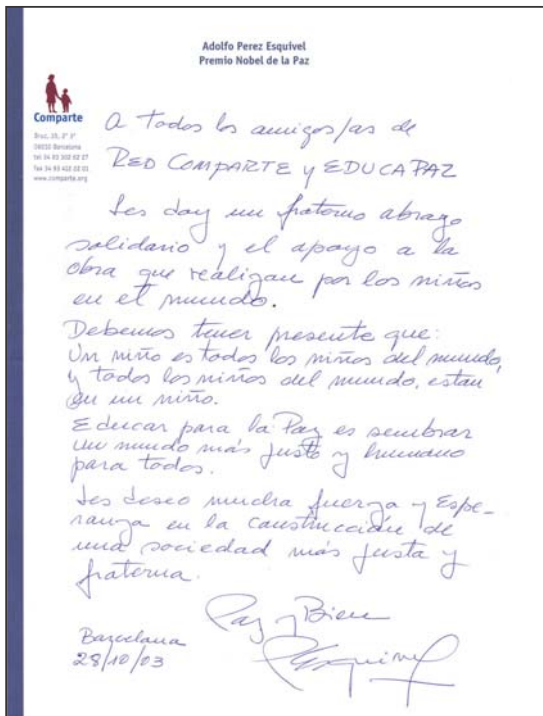 Adolfo Perez Esquivel
Premio Nobel de la Paz
Comparte
Bruc, 35, 2º
08010 Barcelona
tel 34 93 302 62 27
fax 34 93 412
www.comparte.org
A todos los amigos/as de
RED COMPARTE y EDUCAPAZ
Les doy un fraterno abrazo
solidario y el apoyo a la
obra que realizan por los niños
en el mundo.
Debemos tener presente que:
Un niño es todos los niños del mundo,
y todos los niños del mundo, estan
en un niño.
Educar para la Paz es sembrar
un mundo más justo y humano
para todos.
Les deseo mucha fuerza y Espe-
ranza en la construcción de
una sociedad más justa y
fraterna.
Paz y Bien
Barcelona
28/10/03
Esquivel